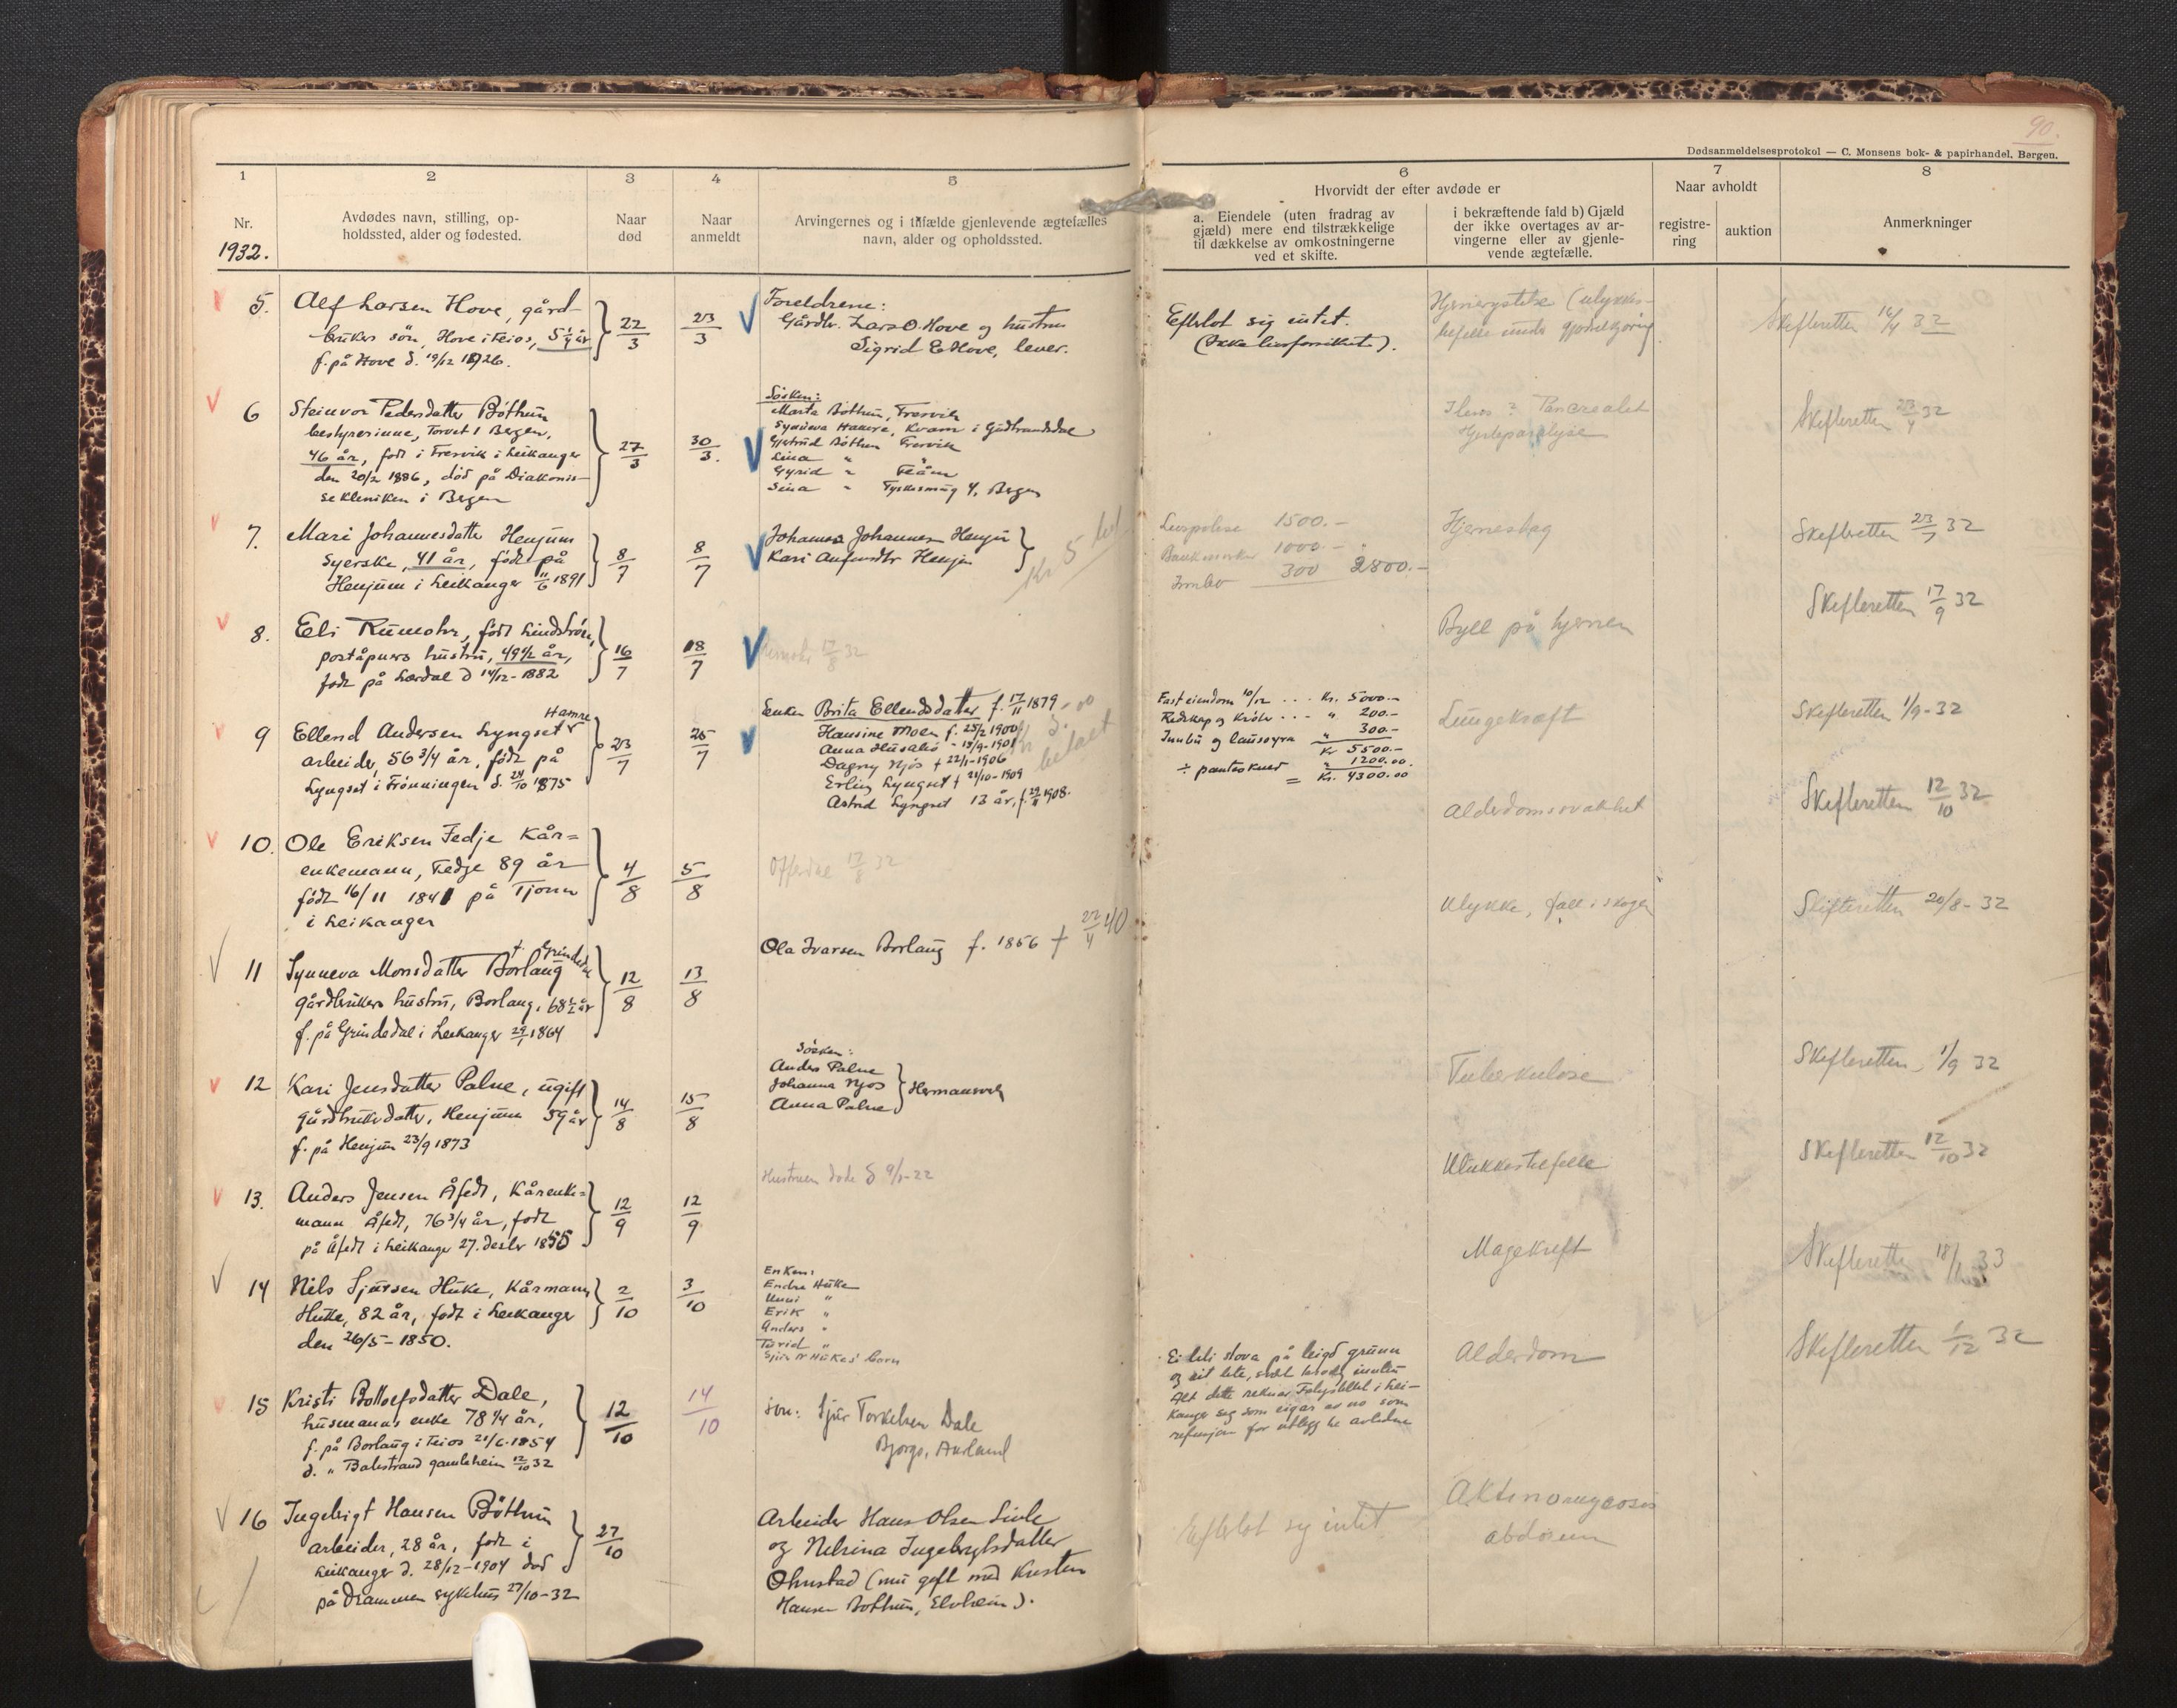 90.
Dødsanmeldelsesprotokol — C. Monsens bok- & papirhandel, Bergen.
1
2
3
4
5
6
7
8
Nr.
1932.
Avdødes navn, stilling, op-
holdssted, alder og fødested.
Naar
død
Naar
anmeldt
Arvingernes og i tilfælde gjenlevende ægtefælles
navn, alder og opholdssted.
Hvorvidt der efter avdøde er
a. Eiendele (uten fradrag av
gjæld) mere end tilstrækkelige
til dækkelse av omkostningerne
ved et skifte.
i bekræftende fald b) Gjæld
der ikke overtages av ar-
vingerne eller av gjenle-
vende ægtefælle.
Naar avholdt
registre-
ring
auktion
Anmerkninger
5. Alf Larsen Hove, gård-
brukers søn, Hove i Feios, 5 1/4 år
f. på Hove d. 19/12 1926.
22/3
23/3
Foreldrene:
Gårdbr. Lars O. Hove og hustru
Sigrid E Hove, lever.
Efterlot sig intet.
(Ikke livsforsikret).
Hjernerystelse (ulykkes-
tilfelle under gjødselkjøring
Skifteretten 14/4 32
6 Steinvor Pedersdatter Bøthun
bestyrerinne, Torvet 1 Bergen,
46 år, født i Fresvik i Leikanger
den 20/2 1886, død på Diakonis-
seklinikken i Bergen
27/3
30/3.
Søsken:
Marta Bøthun, Fresvik
Synneva Hamre, Kvam i Gudbrandsdal
Gjertrud Bøthun Fresvik
Lina " "
Gyrid " Flåm
Sina " Tyskesmug 4, Bergen
Ileus ? Pancreatit
Hjerteparalyse
Skifteretten 23/4 32
7. Mari Johannesdatter Henjum
syerske, 41 år, født på
Henjum i Leikanger 11/6 1891
8/7
8/7
Johannes Johannes Henjum
Kari Henjum
Kr 5 bet.
Livspolise 1500.-
1000.-
Innbo 300 2800.-
Hjerneslag
Skifteretten 23/7 32
8. Eli Rumohr, født Lindstrøm,
poståpners hustru, 49 1/2 år,
født på Lærdal d 14/12-1882
16/7
18/7
Rumohr 17/8 32
Byll på hjernen
Skifteretten 17/9 32
9 Ellend Andersen Lyngset Hamre
arbeider, 56 3/4 år, født på
Lyngset i Frønningen d. 24/10 1875
23/7
25/7
Enken Brita Ellendsdatter f. 17/11 1879
Hansine Moen f. 25/2 1900
Anna Husabø - 15/9-1901
Dagny Njøs + 22/1-1906
Erling Lyngset + 21/10-1909
Astrid Lyngset 13 år, f. 29/11 1908.
betalt
Fast eiendom 10/12 ... Kr. 5000.-
Redskap og Krøtr ... " 200.-
Innbu og lausøyra " 300.-
Kr 5500.-
÷ panteskuld " 1200.00.
= Kr. 4300.00
Lungekræft
Skifteretten 1/9-32
10. Ole Eriksen Fedje Kår=
enkemann, Fedje 89 år
født 16/11 1841 på Tjønn
i Leikanger
4/8
5/8
Offerdal 17/8 32
Alderdomssvakhet
Skifteretten 12/10 32
11 Synneva Monsdatter Borlaug f. Grindedal
gårdbrukers hustru, Borlaug, 68 1/2 år
f. på Grindedal i Leikanger 29/1 1864
12/8
13/8
Ola Ivarsen Borlaug f. 1856 + 22/4 40
Ulykke, fall i skogen
Skifteretten 20/8-32
12 Kari Jensdatter Palne, ugift
gårdbrukerdatter, Henjum 59 år
f. på Henjum 23/9 1873
14/8
15/8
Søsken:
Anders Palne
Johanna Njøs
Anna Palne
Hermansverk
Tuberkulose
Skifteretten 1/9 32
13. Anders Jensen Åfedt, Kårenke=
mann Åfedt, 76 3/4 år, født
på Åfedt i Leikanger 27. desbr 1855
12/9
12/9
Hustruen døde d 9/1-22
Ulukkestilfelle
Skifteretten 12/10 32
14 Nils Sjursen Huke, Kårmann
Huke, 82 år, født i Leikanger
den 26/5-1850.
2/10
3/10
Enken:
Endre Huke
Unni "
Erik "
Anders "
Turid "
Sjur N Hukes' barn
Magekreft
Skifteretten 18/1 33
15 Kristi Bottolfsdatter Dale,
husmanns enke 78 1/4 år,
f. på Borlaug i Feios 21/6-1854
d. " Balestrand gamleheim 12/10 32
12/10
14/10
søn: Sjur Torkelsen Dale
Bjørgo, Aurland
Ei liti stova på leigd grunn
og eit lite, innbu
Alt dette reknar Fatigstellet i Lei-
kanger seg som eigar av no som
refusjon for utlegg
Alderdom
Skifteretten 1/12 32
16 Ingebrigt Hansen Bøthun
arbeider, 28 år, født i
Leikanger d. 28/12-1904 død
på Drammen sykehus 27/10-32
27/10
Arbeider Hans Olsen
og Nelsina Ingebrigtsdatter
Ohnstad (nu gift med Kristen
Hansen Bøthun, Elvheim).
Efterlot sig intet
Aktinomycosis
abdomen